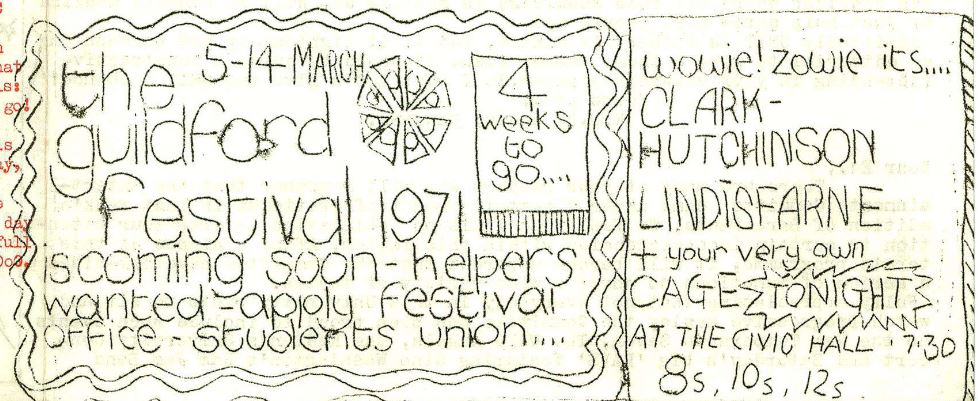 5-14 MARCH
the
guildford
festival 1971
is coming soon - helpers
wanted - apply festival
office - students union....
4
weeks
to
go....
wowie! zowie its....
CLARK-
HUTCHINSON
LINDISFARNE
+ your very own
CAGE TONIGHT
AT THE CIVIC HALL 7:30
8s, 10s, 12s